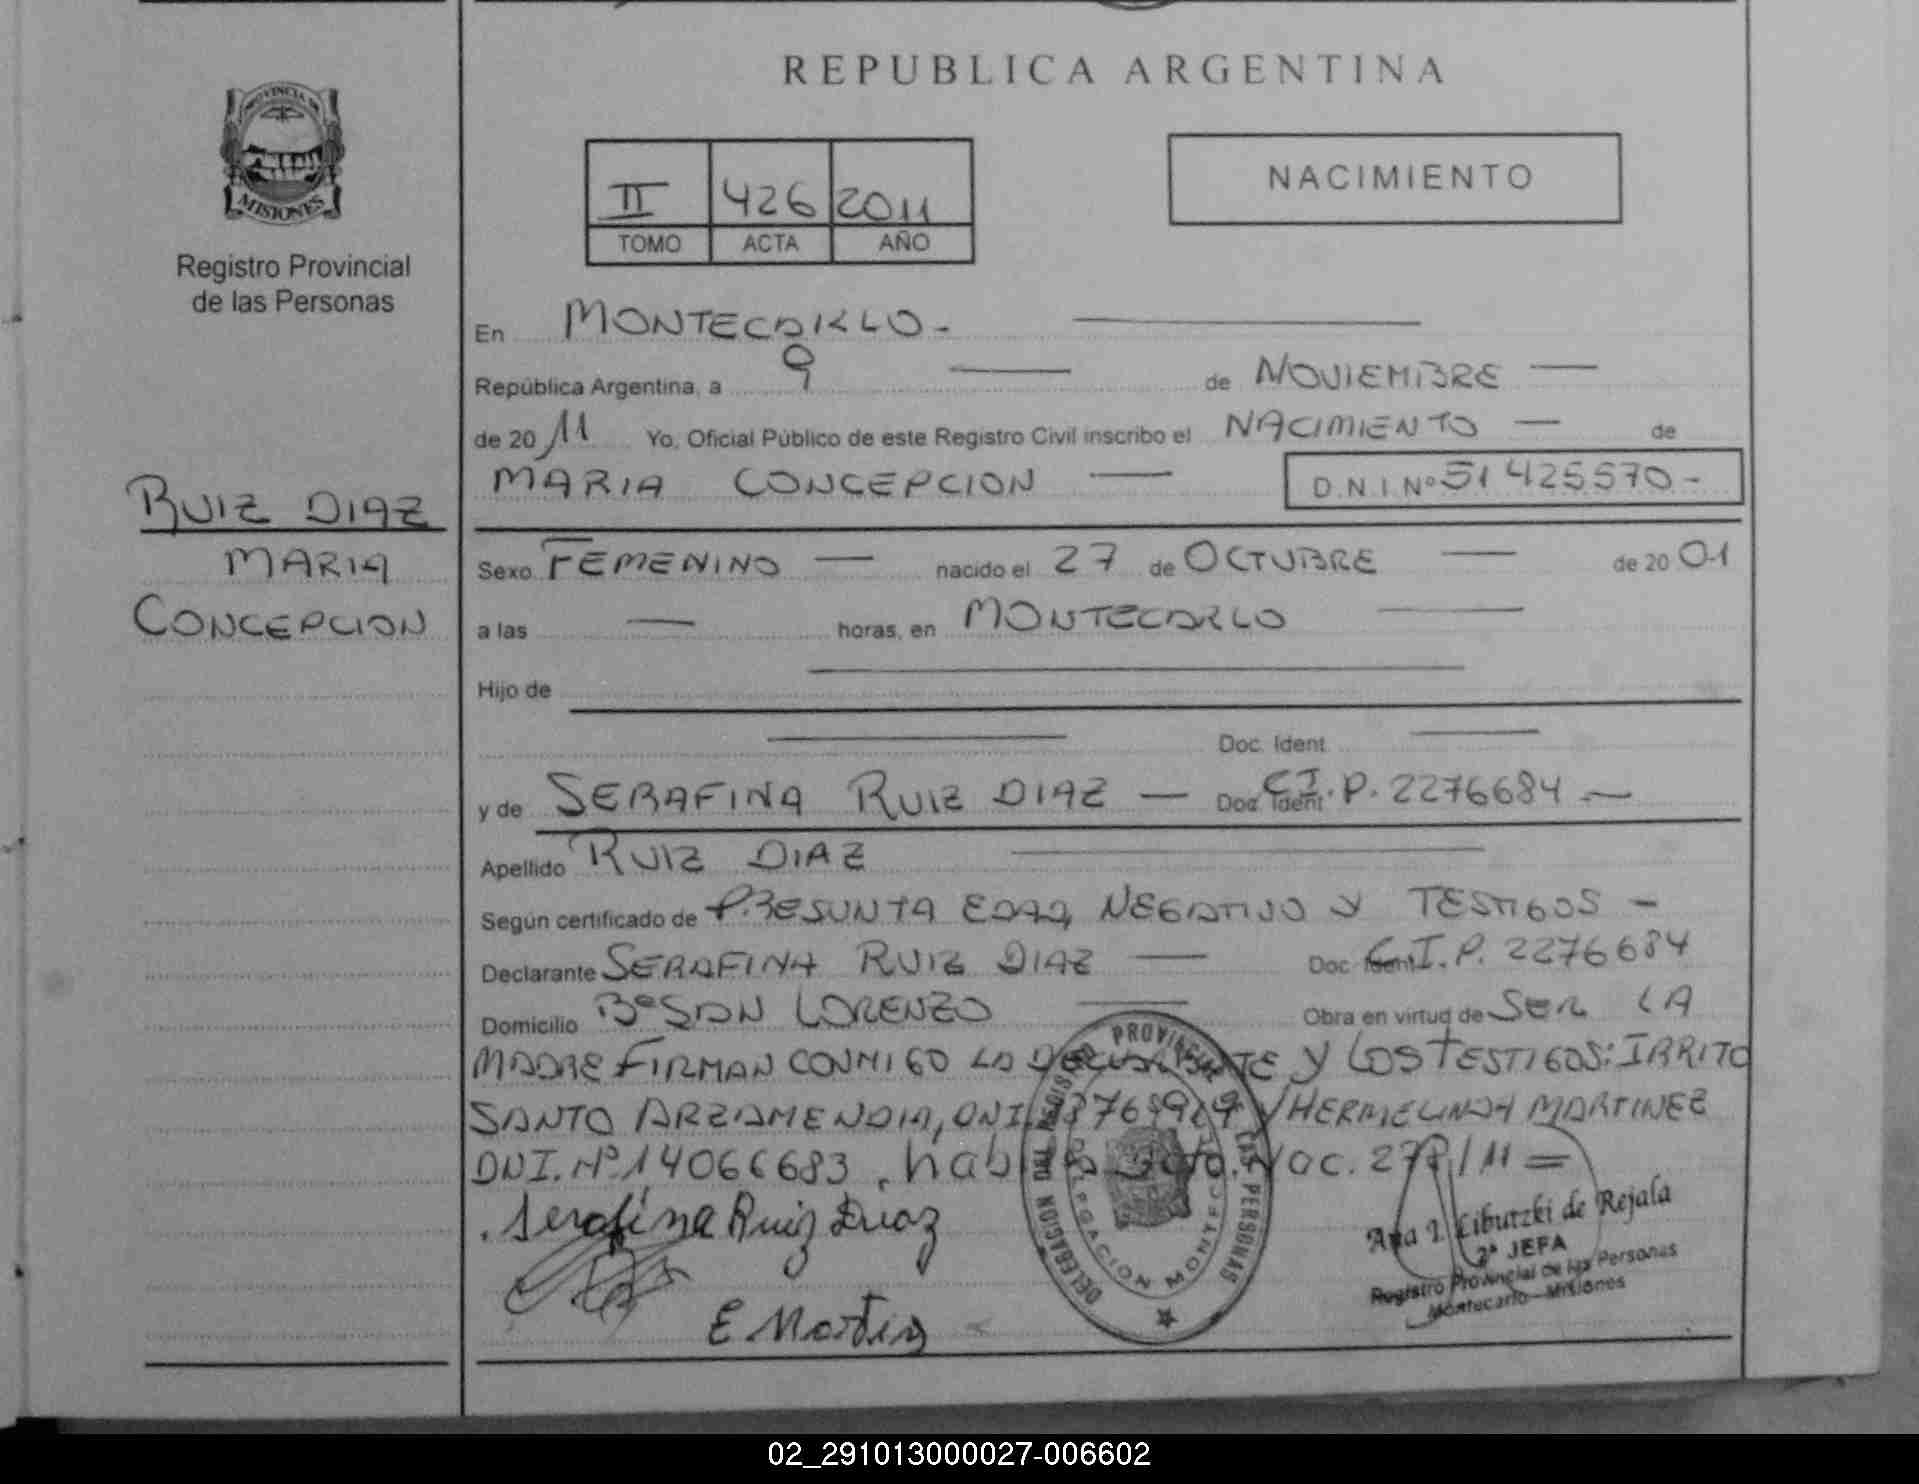 REPUBLICA ARGENTINA
PROVINCIA DE
MISIONES
Registro Provincial
de las Personas
II 426 2011
TOMO ACTA AÑO
NACIMIENTO
RUIZ DIAZ
MARIA
CONCEPCION
En MONTECARLO -
República Argentina, a 9 de NOVIEMBRE
de 2011 Yo, Oficial Público de este Registro Civil inscribo el NACIMIENTO de
MARIA CONCEPCION D.N.I.Nº 51425570-
Sexo FEMENINO nacido el 27 de OCTUBRE de 2001
a las horas, en MONTECARLO
Hijo de
Doc. Ident.
y de SERAFINA RUIZ DIAZ Doc. Ident. C.I.P. 2276684
Apellido RUIZ DIAZ
Según certificado de PRESUNTA EDAD, NEGATIVO Y TESTIGOS -
Declarante SERAFINA RUIZ DIAZ Doc. Ident. C.I.P. 2276684
Domicilio Bº SAN LORENZO Obra en virtud de SER LA
MADRE FIRMAN CONMIGO LA DECLARANTE Y LOS TESTIGOS: IRRITO
SANTO ARZAMENDIA, DNI. Y HERMELINDA MARTINEZ
DNI. Nº 14066683, Nac. /11 =
Serafina Ruiz Diaz
E Martinez
DELEGACION DEL REGISTRO PROVINCIAL DE LAS PERSONAS
DELEGACION
Ana I. Libutzki de Rejala
2ª JEFA
Registro Provincial de las Personas
Montecarlo - Misiones
02_291013000027-006602